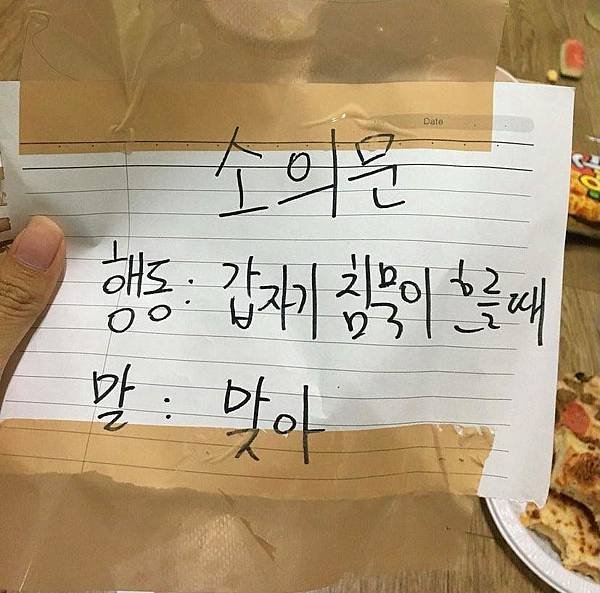 Date
소의문
행동: 갑자기 침묵이 흐를때
말 : 맞아